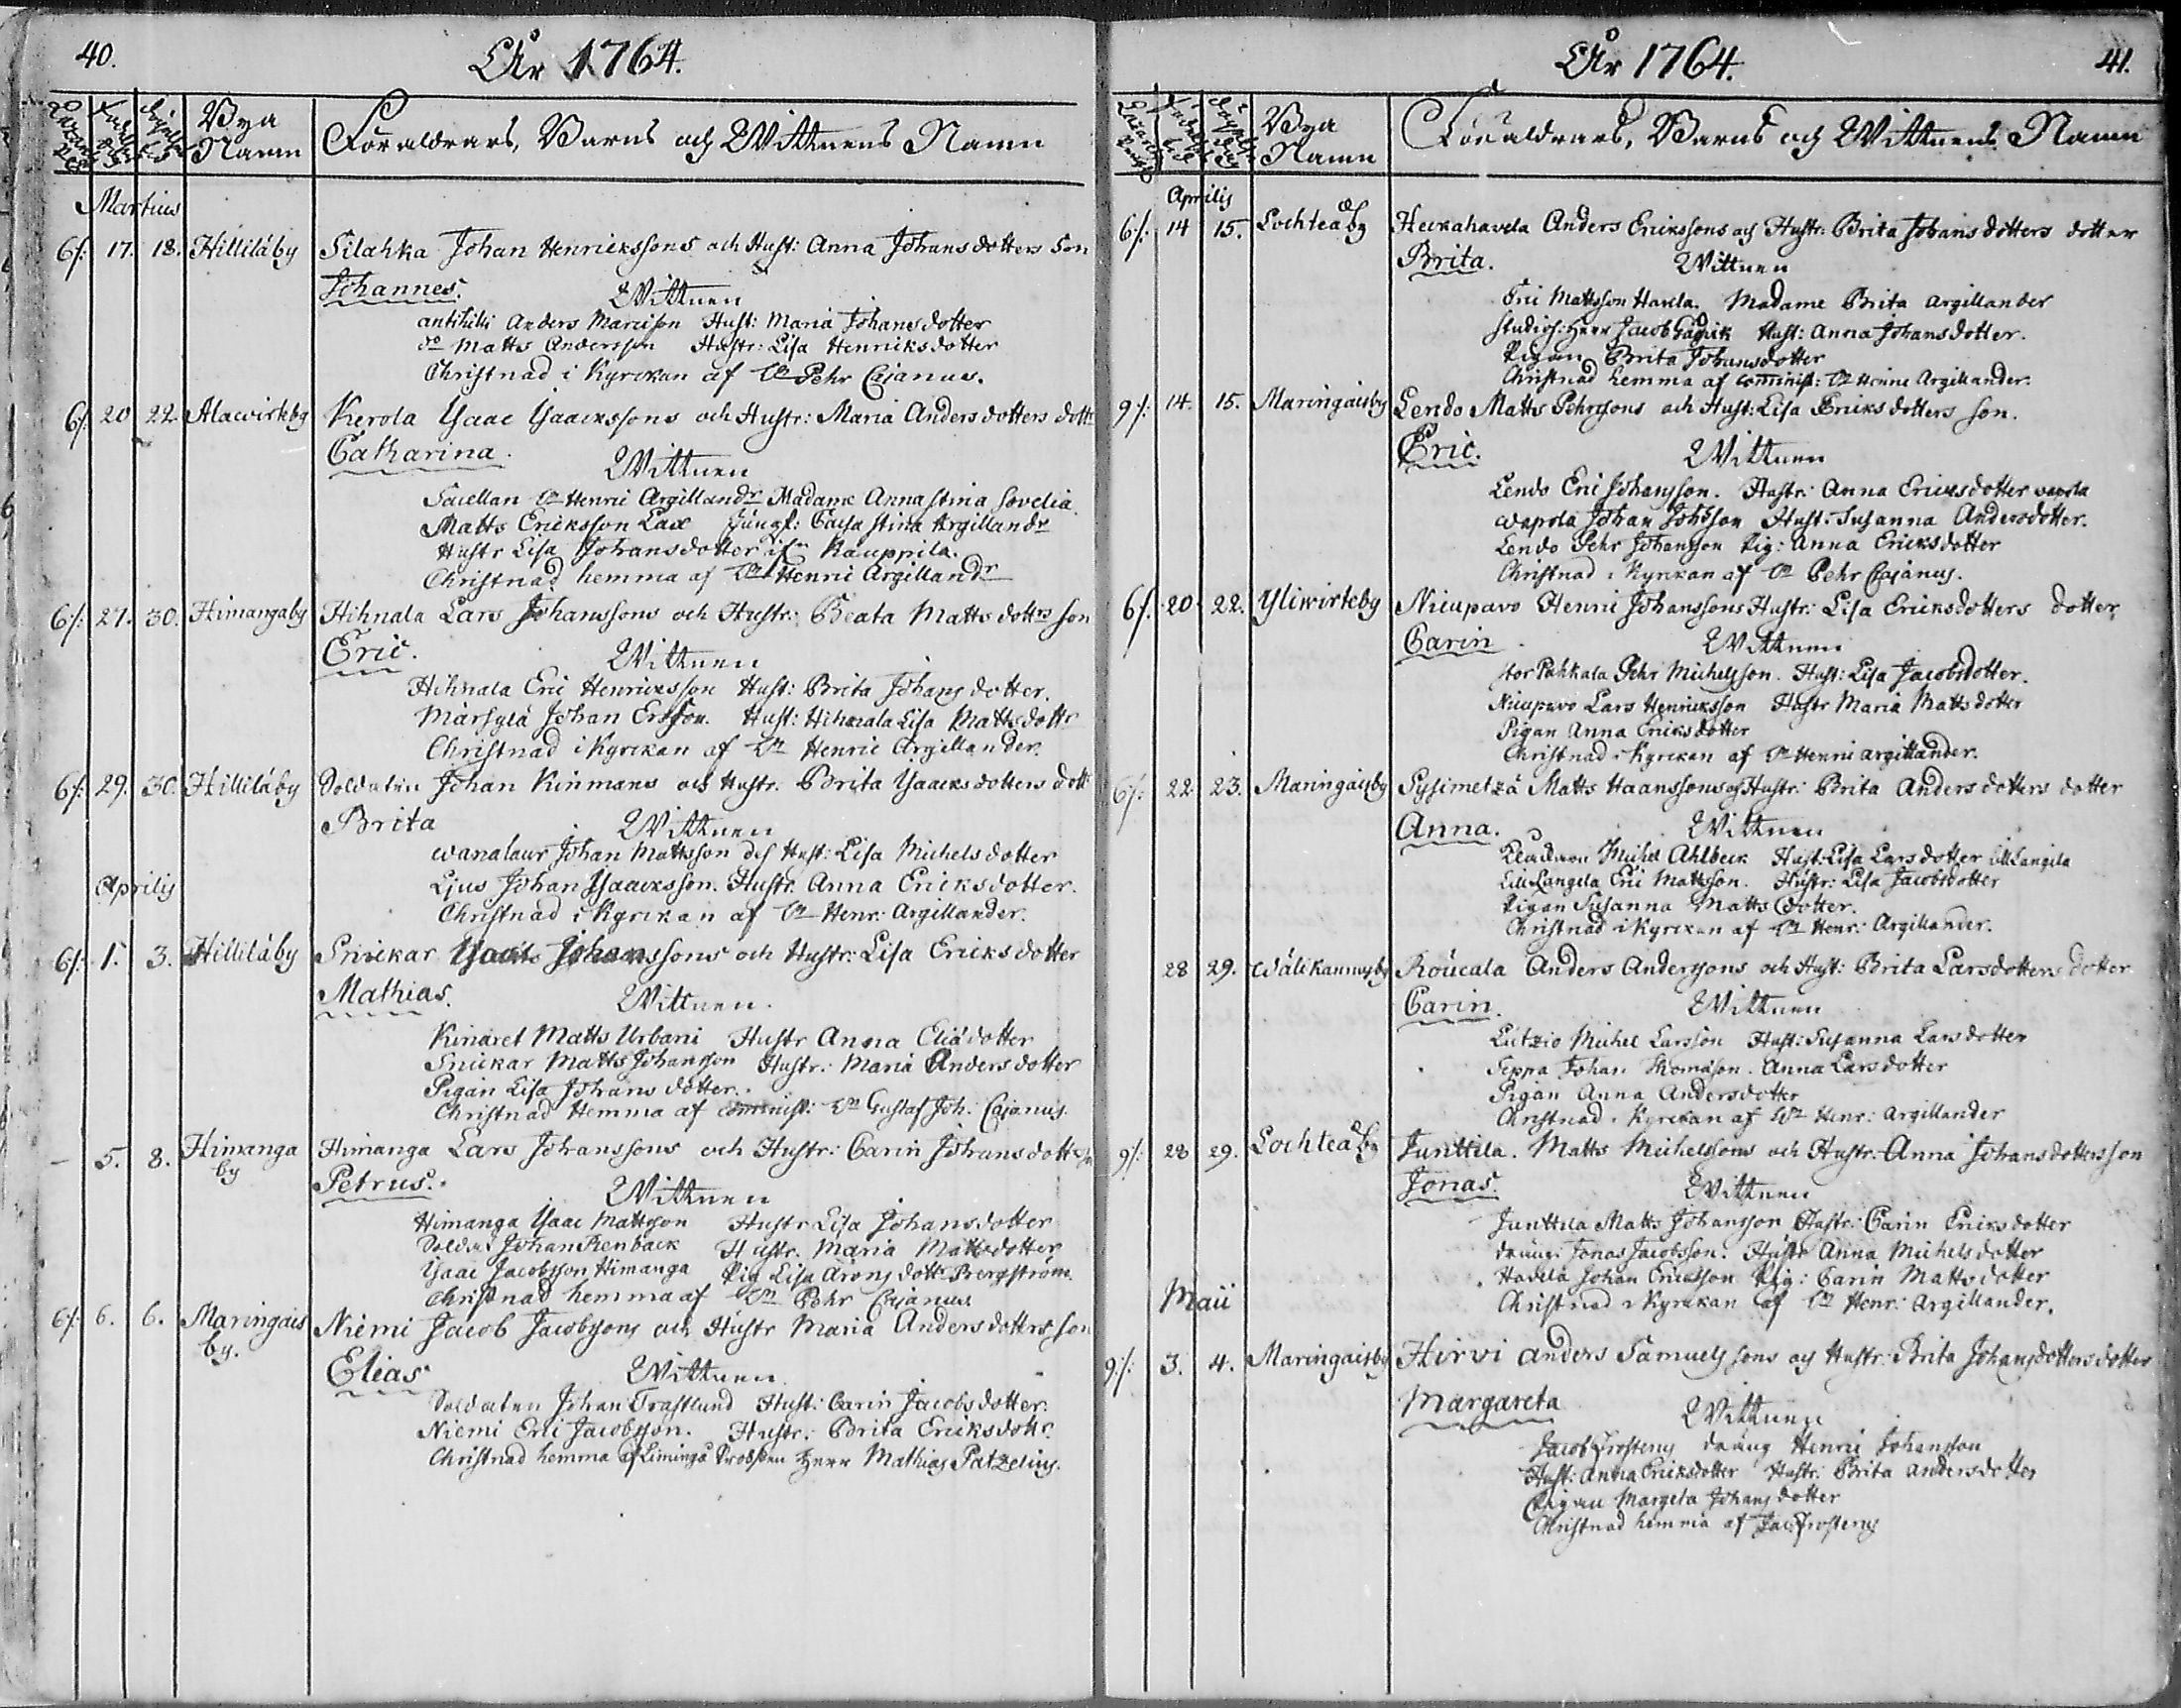 40.
År 1764.
Bya Namn
Föräldrars, Barns och Wittnens Namn
Martius
6/: 17. 18. Hilliläby Silahka Johan Henrickssons och Hust: Anna Johansdotters Son
Johannes. Wittnen
Anders Marcison Hust: Maria Johansdotter
do Matts Andersson Hustr: Lisa Henriksdotter
Christnad i Kyrckan af Pehr Cajanus.
6/: 20 22 Alawirkby Kerola Ysaac Ysaackssons och Hustr: Maria Andersdotters dott
Catharina. Wittnen
Henric Argillandr Madame Anna Stina Sovelia
Matts Ericksson Lax Jungf: Caisa Stina Argillandr
Hustr Lisa Johansdotter Kauppila.
Christnad hemma af Henric Argillandr
6/: 27. 30. Himangaby Hihnala Lars Johanssons och Hustr: Beata Matts dottrs son
Eric. Wittnen
Hihnala Eric Henricksson Hust: Brita Johansdotter.
Märsylä Johan Ersson. Hust: Hihnala Lisa Mattsdottr
Christnad i Kyrckan af Henric Argillander.
6/: 29. 30. Hilliläby Soldaten Johan Kinmans och Hustr. Brita Ysaacksdotters dott
Brita Wittnen
wanalaur Johan Mattsson des Hust: Lisa Michelsdotter
Ljus Johan Ysaacksson. Hustr. Anna Ericksdotter.
Christnad i Kyrckan af Henr: Argillander.
Aprilis
6/: 1. 3. Hilliläby Snickar Johanssons och Hustr: Lisa Ericksdotter
Mathias. Wittnen.
Kinaret Matts Urbani Hustr Anna Eliädotter
Snickar Matts Johansson Hustr: Maria Andersdotter
Pigan Lisa Johansdotter.
Christnad Hemma af comminist: Gustaf Joh. Cajanus.
- 5. 8. Himanga by Himanga Lars Johanssons och Hustr: Carin Johansdotters
Petrus. Wittnen
Himanga Ysaac Mattsson Hustr Lisa Johansdotter
Soldat Johan Renback Hustr. Maria Mattsdotter
Ysaac Jacobsson Himanga Pig Lisa Aronsdottr Bergström.
Christnad hemma af Pehr Cajanus
6/: 6. 6. Maringais by. Niemi Jacob Jacobssons och Hustr Maria Andersdotters son
Elias Wittnen
Soldaten Johan Trastlund Hust: Carin Jacobsdotter.
Niemi Eric Jacobsson. Hustr: Brita Ericksdottr.
Christnad hemma af Limingo Probsten Herr Mathias Patzelius.
År 1764.
41.
Bya Namn
Föräldrars, Barns och Wittnens Namn
Aprilis
6/: 14 15. Lochteåby Heickahavela Anders Erickssons och Hustr: Brita Johansdotters dotter
Brita. Wittnen
Eric Mattsson Havela. Madame Brita Argillander
Studios: Herr Jacob Hust: Anna Johansdotter.
Pigan Brita Johansdotter
Christnad hemma af comminist: Henric Argillander.
9/: 14. 15. Maringaisby Lendo Matts Pehrssons och Hust: Lisa Ericksdotters son.
Eric. Wittnen
Lendo Eric Johansson. Hustr: Anna Ericksdotter
wapola Johan Johsson Hust: Susanna Andersdotter.
Lendo Pehr Johansson Pig: Anna Ericksdotter
Christnad i Kyrckan af Pehr Cajanus.
6/: 20 22. Yliwirkby Nicupavo Henric Johanssons Hustr: Lisa Ericksdotters dotter.
Carin Wittnen
stor Pahkala Pehr Michelsson. Hust: Lisa Jacobsdotter.
Nicupavo Lars Henricksson Hustr Maria Mattsdotter
Pigan Anna Ericksdotter
Christnad i Kyrckan af Henric Argillander.
6/: 22 23. Maringaisby Sysimetzä Matts Haanssons och Hustr: Brita Andersdotters dotter
Anna. Wittnen
Michel Ahlbeck Hust: Lisa Larsdotter Lill Langila
Lill Langila Eric Mattsson. Hustr: Lisa Jacobsdotter
Pigan Susanna Matts dotter.
Christnad i Kyrckan af Henr: Argillander.
28 29. Wälikannusby Röucala Anders Anderssons och Hust: Brita Larsdotters dotter
Carin. Wittnen
Lutzio Michel Larsson Hust: Susanna Larsdotter
Seppa Johan Thomason. Anna Larsdotter
Pigan Anna Andersdotter
Christnad i Kyrckan af Henr: Argillander
9/: 28 29. Lochteåby Junttila. Matts Michelssons och Hustr: Anna Johansdotters son
Jonas. Wittnen
Junttila Matts Johansson Hustr: Carin Ericksdotter
dräng: Jonas Jacobsson. Hustr Anna Michelsdotter
Havela Johan Ericksson Pig: Carin Mattsdotter
Christnad i Kyrckan af Henr: Argillander.
Maii
9/: 3. 4. Maringaisby Hirvi Anders Samuelssons och Hustr: Brita Johansdotters dotter
Margareta Wittnen
Jacob Frosterus dräng Henric Johansson
Hust: Anna Ericksdotter Hustr: Brita Andersdotter
Pigan Margeta Johansdotter
Christnad hemma af Jac. Frosterus